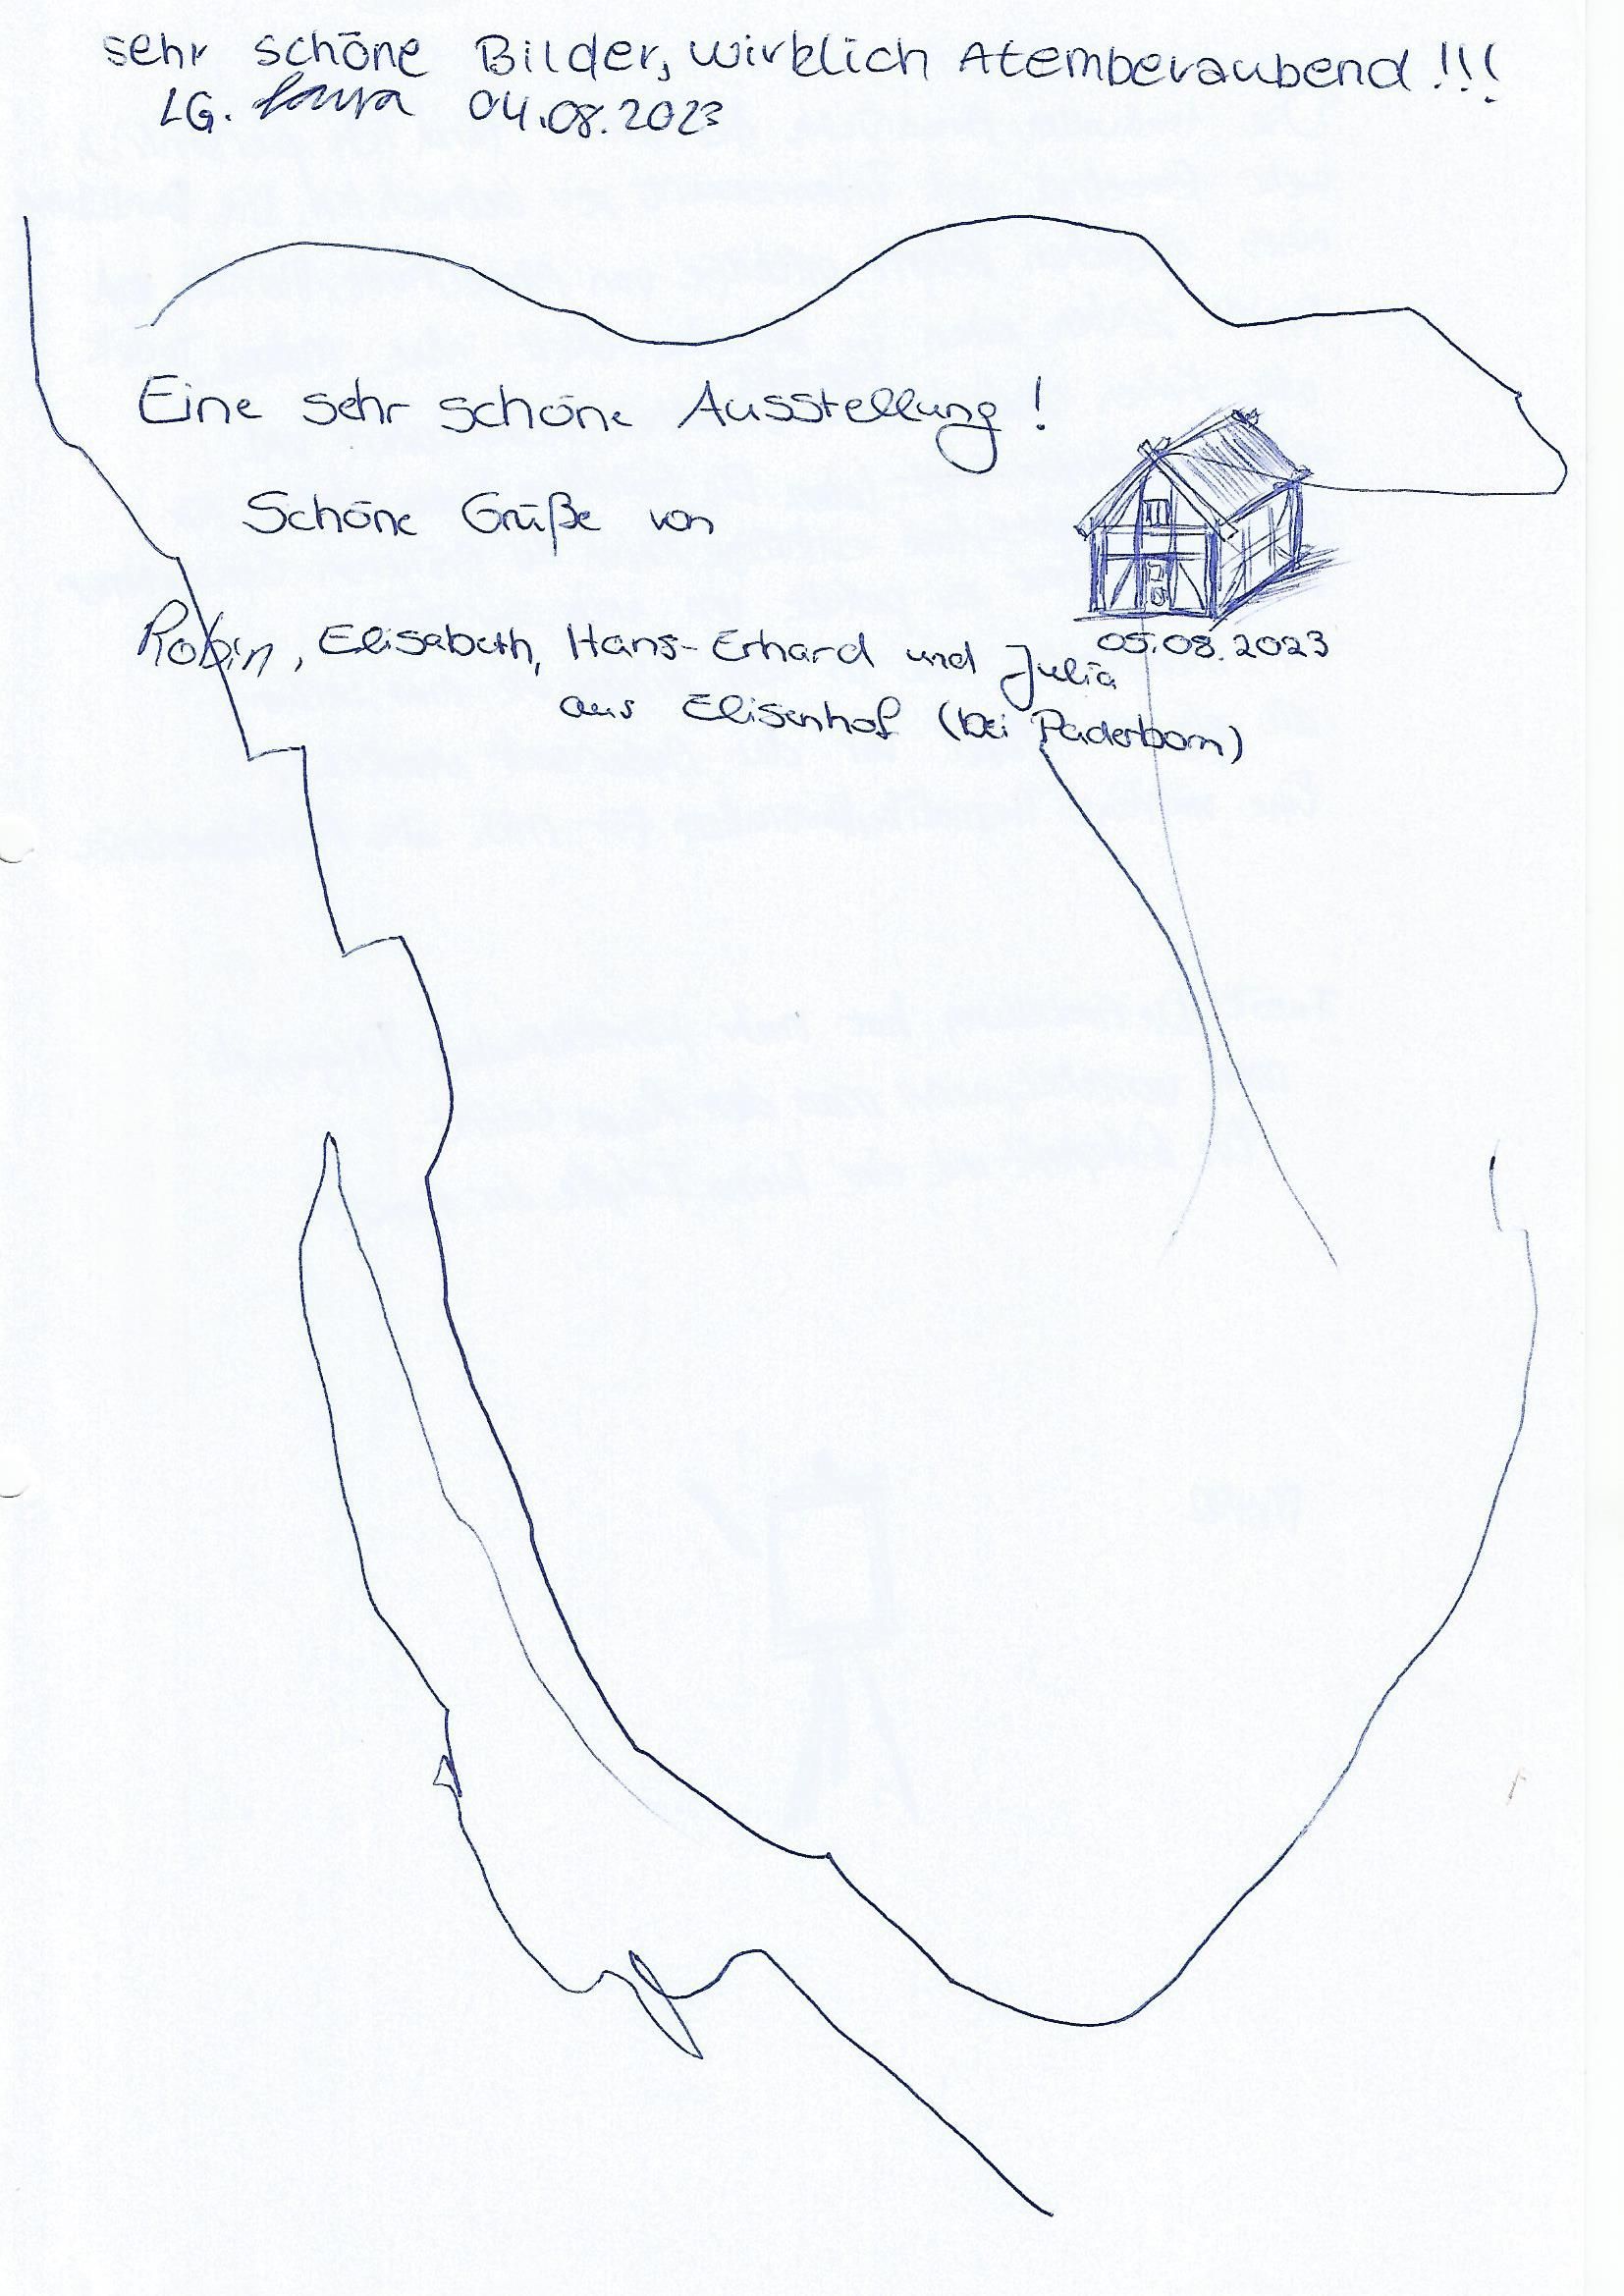 sehr schöne Bilder, wirklich Atemberaubend !!!
LG. Laura 04.08.2023
Eine sehr schöne Ausstellung !
Schöne Grüße von
Robin, Elisabeth, Hans-Erhard und Julia
05.08.2023
aus Elisenhof (bei Paderborn)